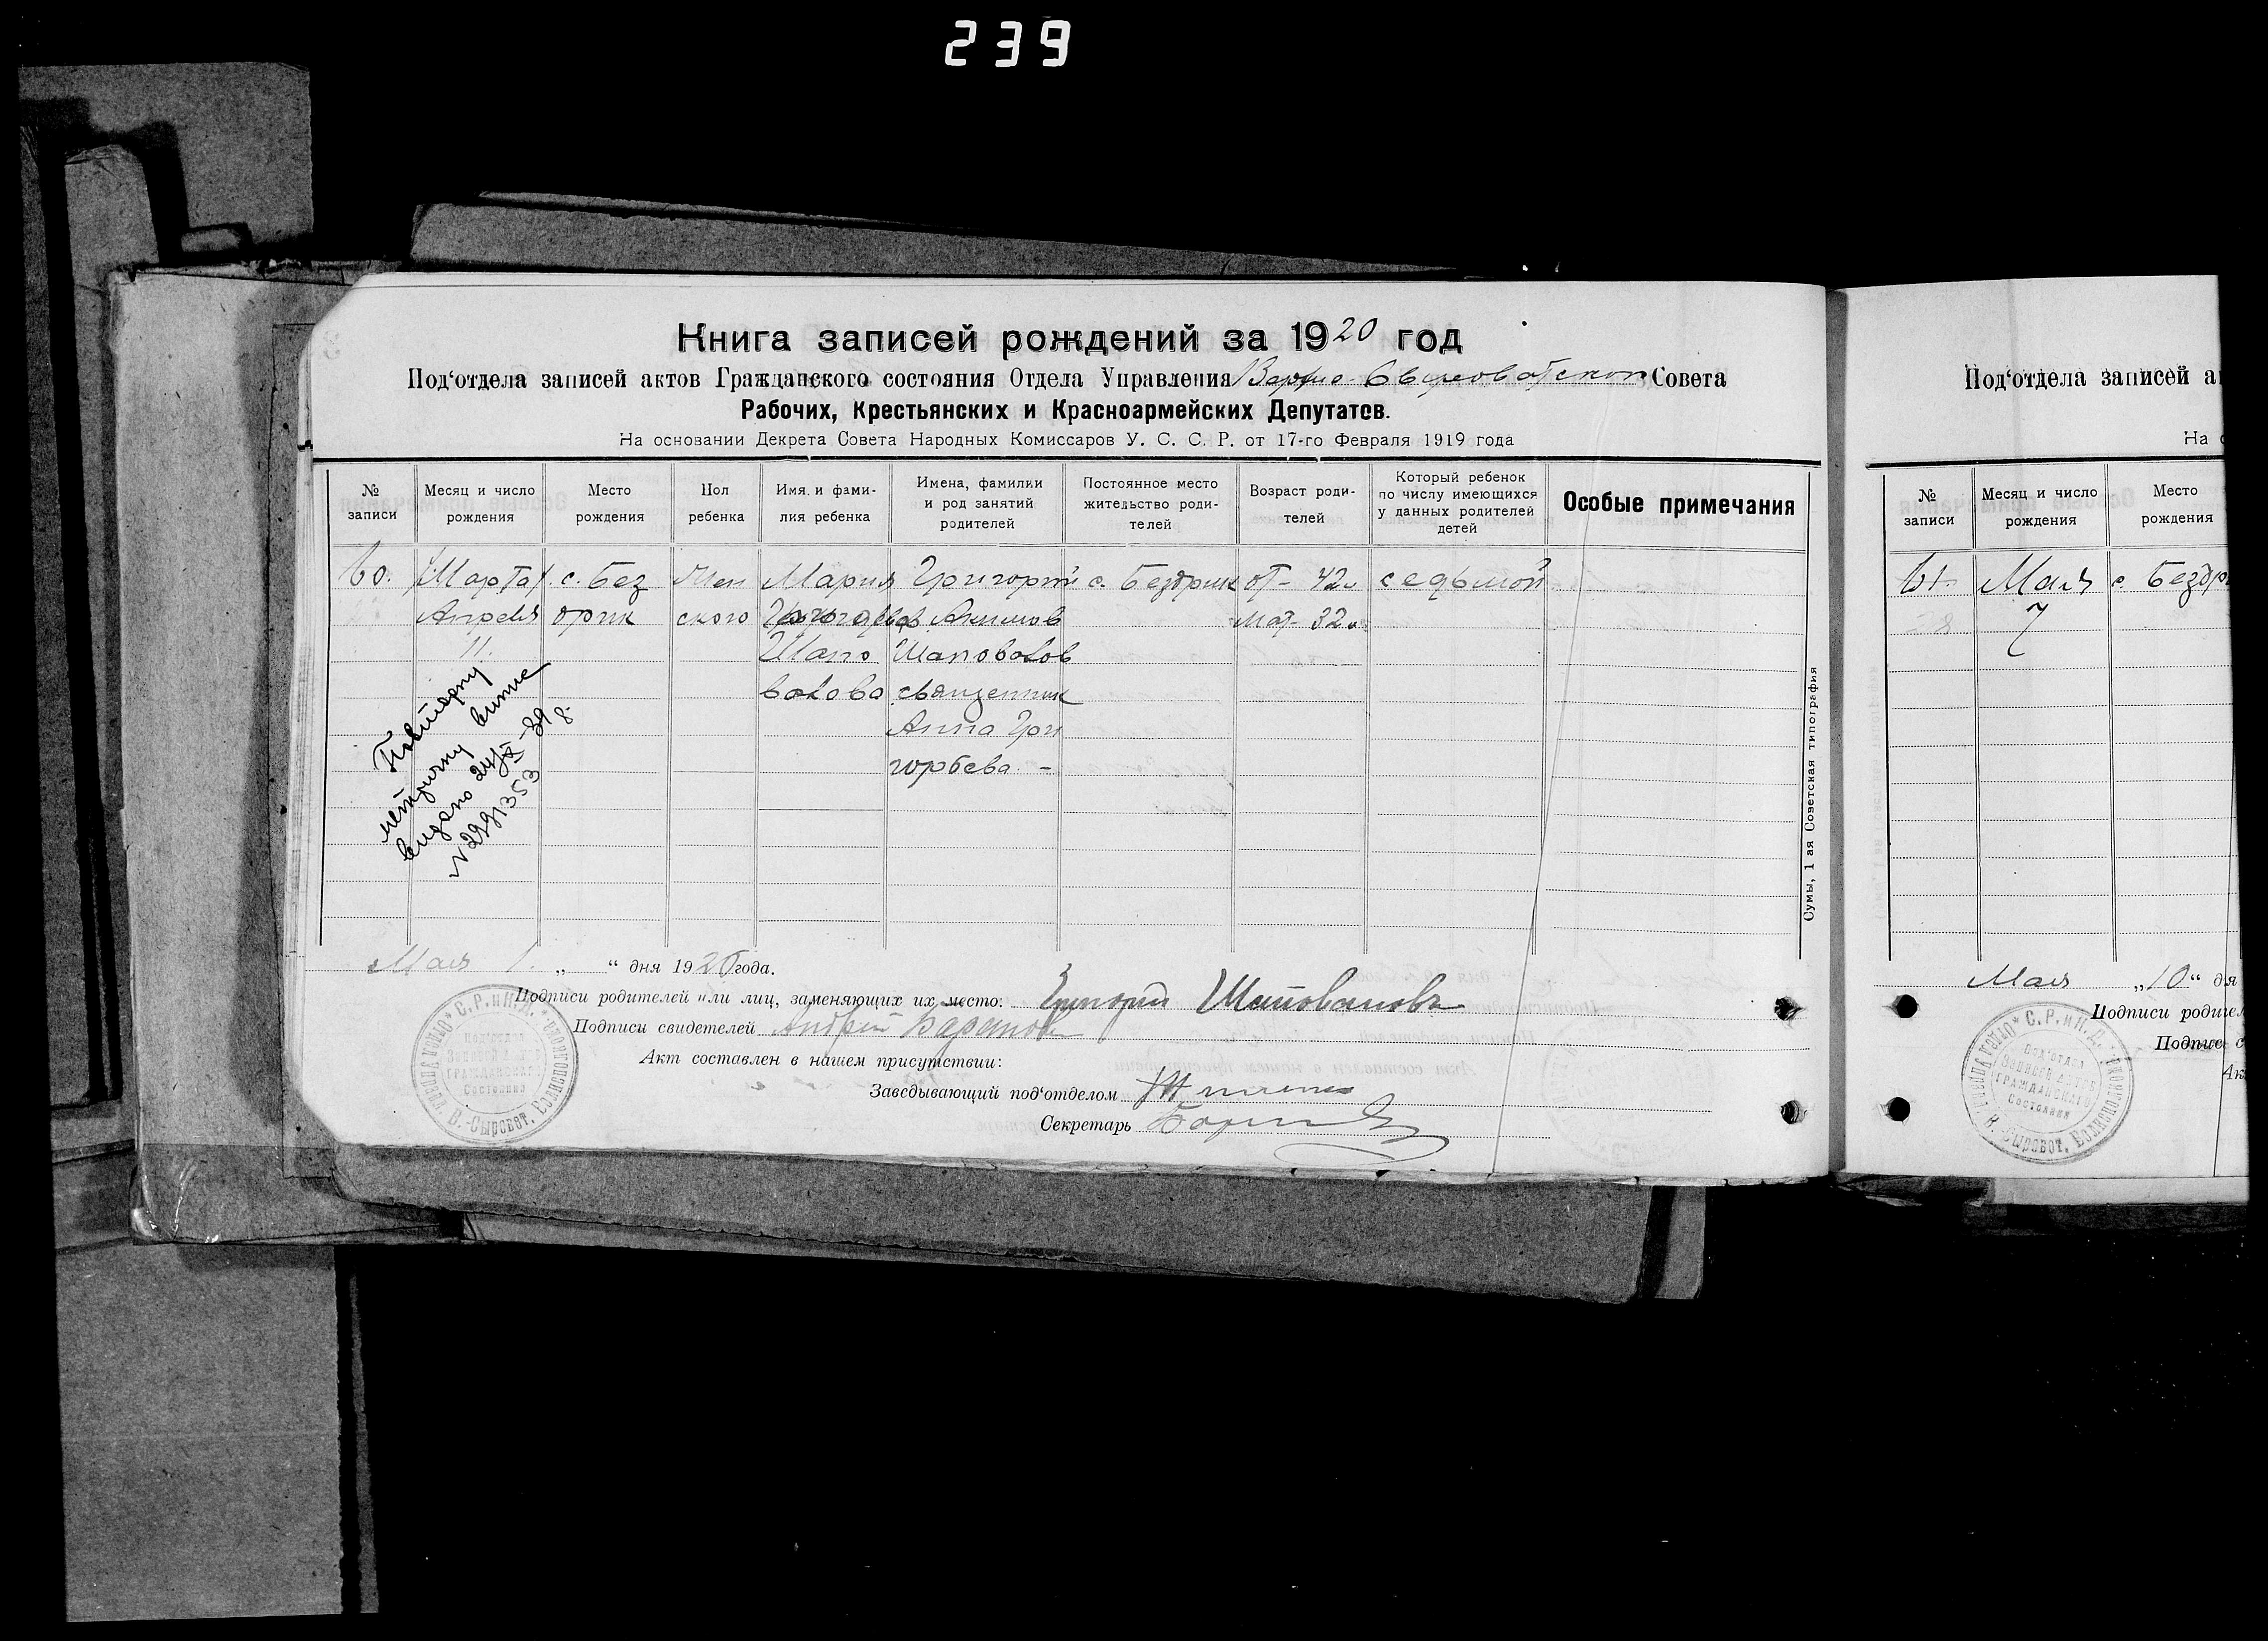 239
Книга записей рождений за 1920 год
Под‘отдела записей актов Гражданского состояния Отдела Управления Верхне-Совета
Рабочих, Крестьянских и Красноармейских Депутатов.
На основании Декрета Совета Народных Комиссаров У. С. С. Р. от 17-го Февраля 1919 года
№ записи
Месяц и число рождения
Место рождения
Пол ребенка
Имя и фами-лия ребенка
Имена, фамилии и род занятий родителей
Постоянное место жительство роди-телей
Возраст роди-телей
Который ребенок по числу имеющихся у данных родителей детей
Особые примечания
60. (Марта) с. Без Жен Мария Григорий с. Бездрик от- 42 седьмой
Апреля дрик ского Акимов мат- 32
11. Шапо Шаповалов
валова священник
Анна Гри
горьева -
Повторну
метричну випис
видано 24/IX-39
№ 291353
Мая 1. „ “ дня 1920 года.
Подписи родителей или лиц, заменяющих их место: Григорий Шаповаловъ
Подписи свидетелей Андрей
Акт составлен в нашем присутствии:
Заведывающий под‘отделом
Секретарь
С. Р. и К. Д.
Под‘отдел
Записей актов
ГРАЖДАНСКАГО
Состояния
В.-Сыроват.
Сумы, 1 ая Советская типография
Под‘отдела записей а
На
№ записи
Месяц и число рождения
Место рождения
61. Мая с. Бездр
7
Мая „10“ д
Подписи родител
Подпис с
Ак
С. Р. и К. Д.
Под‘отдел
Записей актов
ГРАЖДАНСКАГО
Состояния
В.-Сыроват.